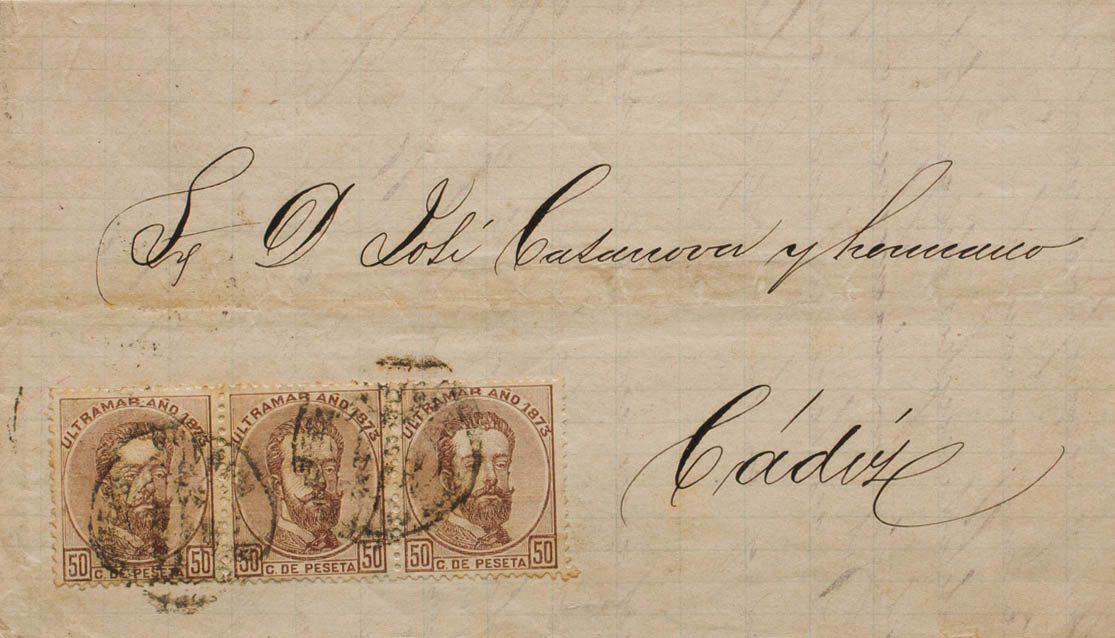 Sr D José Casanova y hermano
Cádiz
ULTRAMAR AÑO 1873 ULTRAMAR AÑO 1873 ULTRAMAR AÑO 1873
50 C. DE PESETA 50 50 C. DE PESETA 50 50 C. DE PESETA 50